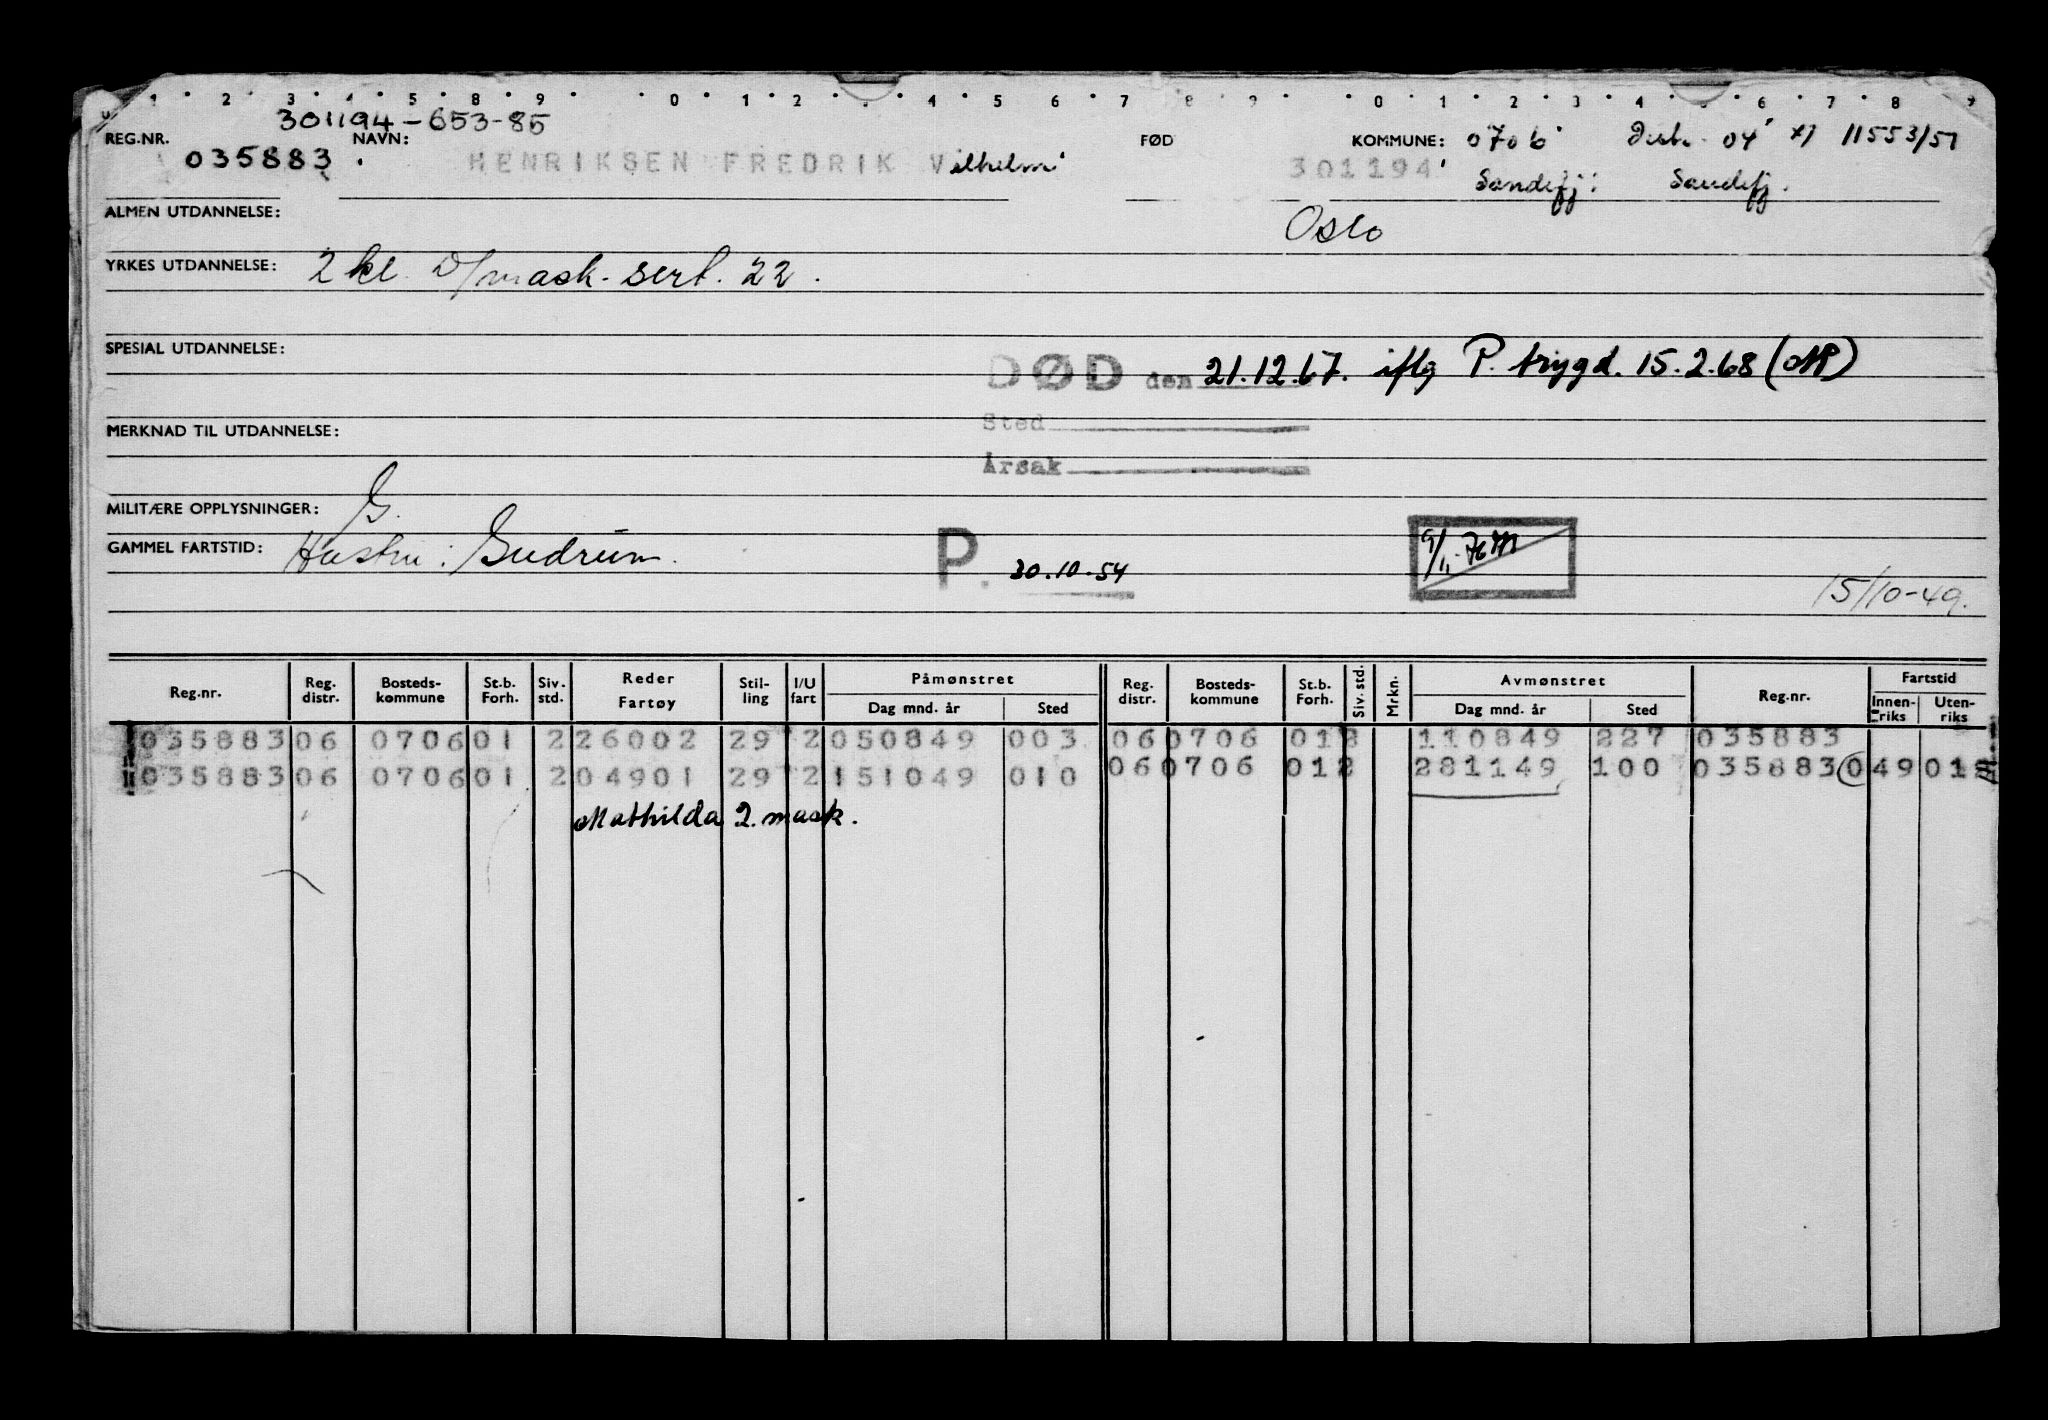 1 2 3 4 5 8 9 0 1 2 4 5 6 7 8 9 0 1 2 3 4 6 7 8 9
301194-653-85
REG.NR. NAVN: FØD KOMMUNE: 0706 Distr. 04 *) 11553/51
035883. HENRIKSEN FREDRIK Vilhelm 301194 Sandefj: Sandefj.
ALMEN UTDANNELSE: Oslo
YRKES UTDANNELSE: 2 kl. D/mask-sert. 22.
SPESIAL UTDANNELSE:
DØD den 21.12.67. iflg P. trygd. 15.2.68 (MP)
MERKNAD TIL UTDANNELSE: Sted
Årsak
MILITÆRE OPPLYSNINGER: G.
GAMMEL FARTSTID: Hustru: Gudrun. P. 30.10-54 9/1.
15/10-49.
Reg.nr. Reg. distr. Bosteds-kommune St.b. Forh. Siv. std. Reder Fartøy Stil-ling I/U fart Påmønstret Dag mnd. år Sted Reg. distr. Bosteds-kommune St.b. Forh. Siv. std. Mrkn. Avmønstret Dag mnd. år Sted Reg.nr. Fartstid Innen-riks Uten-riks
035883 06 0706 01 2 26002 29 2 050849 003 06 0706 01 2 110849 227 035883
035883 06 0706 01 2 04901 29 2 151049 010 06 0706 01 2 281149 100 035883 0 49 01
Mathilda 2. mask.